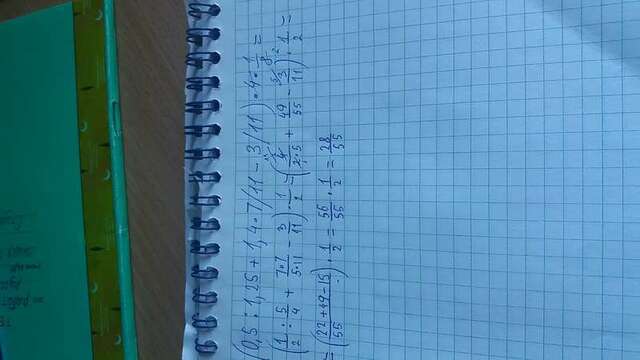 (0,5 : 1,25 + 1,4 · 7/11 - 3/11) · 4 · 1/8 =
(1/2 : 5/4 + 7·7/5·11 - 3/11) · 1/2 = (4/2·5 + 49/55 - 3/11) · 1/2 =
= (22+49-15/55) · 1/2 = 56/55 · 1/2 = 28/55